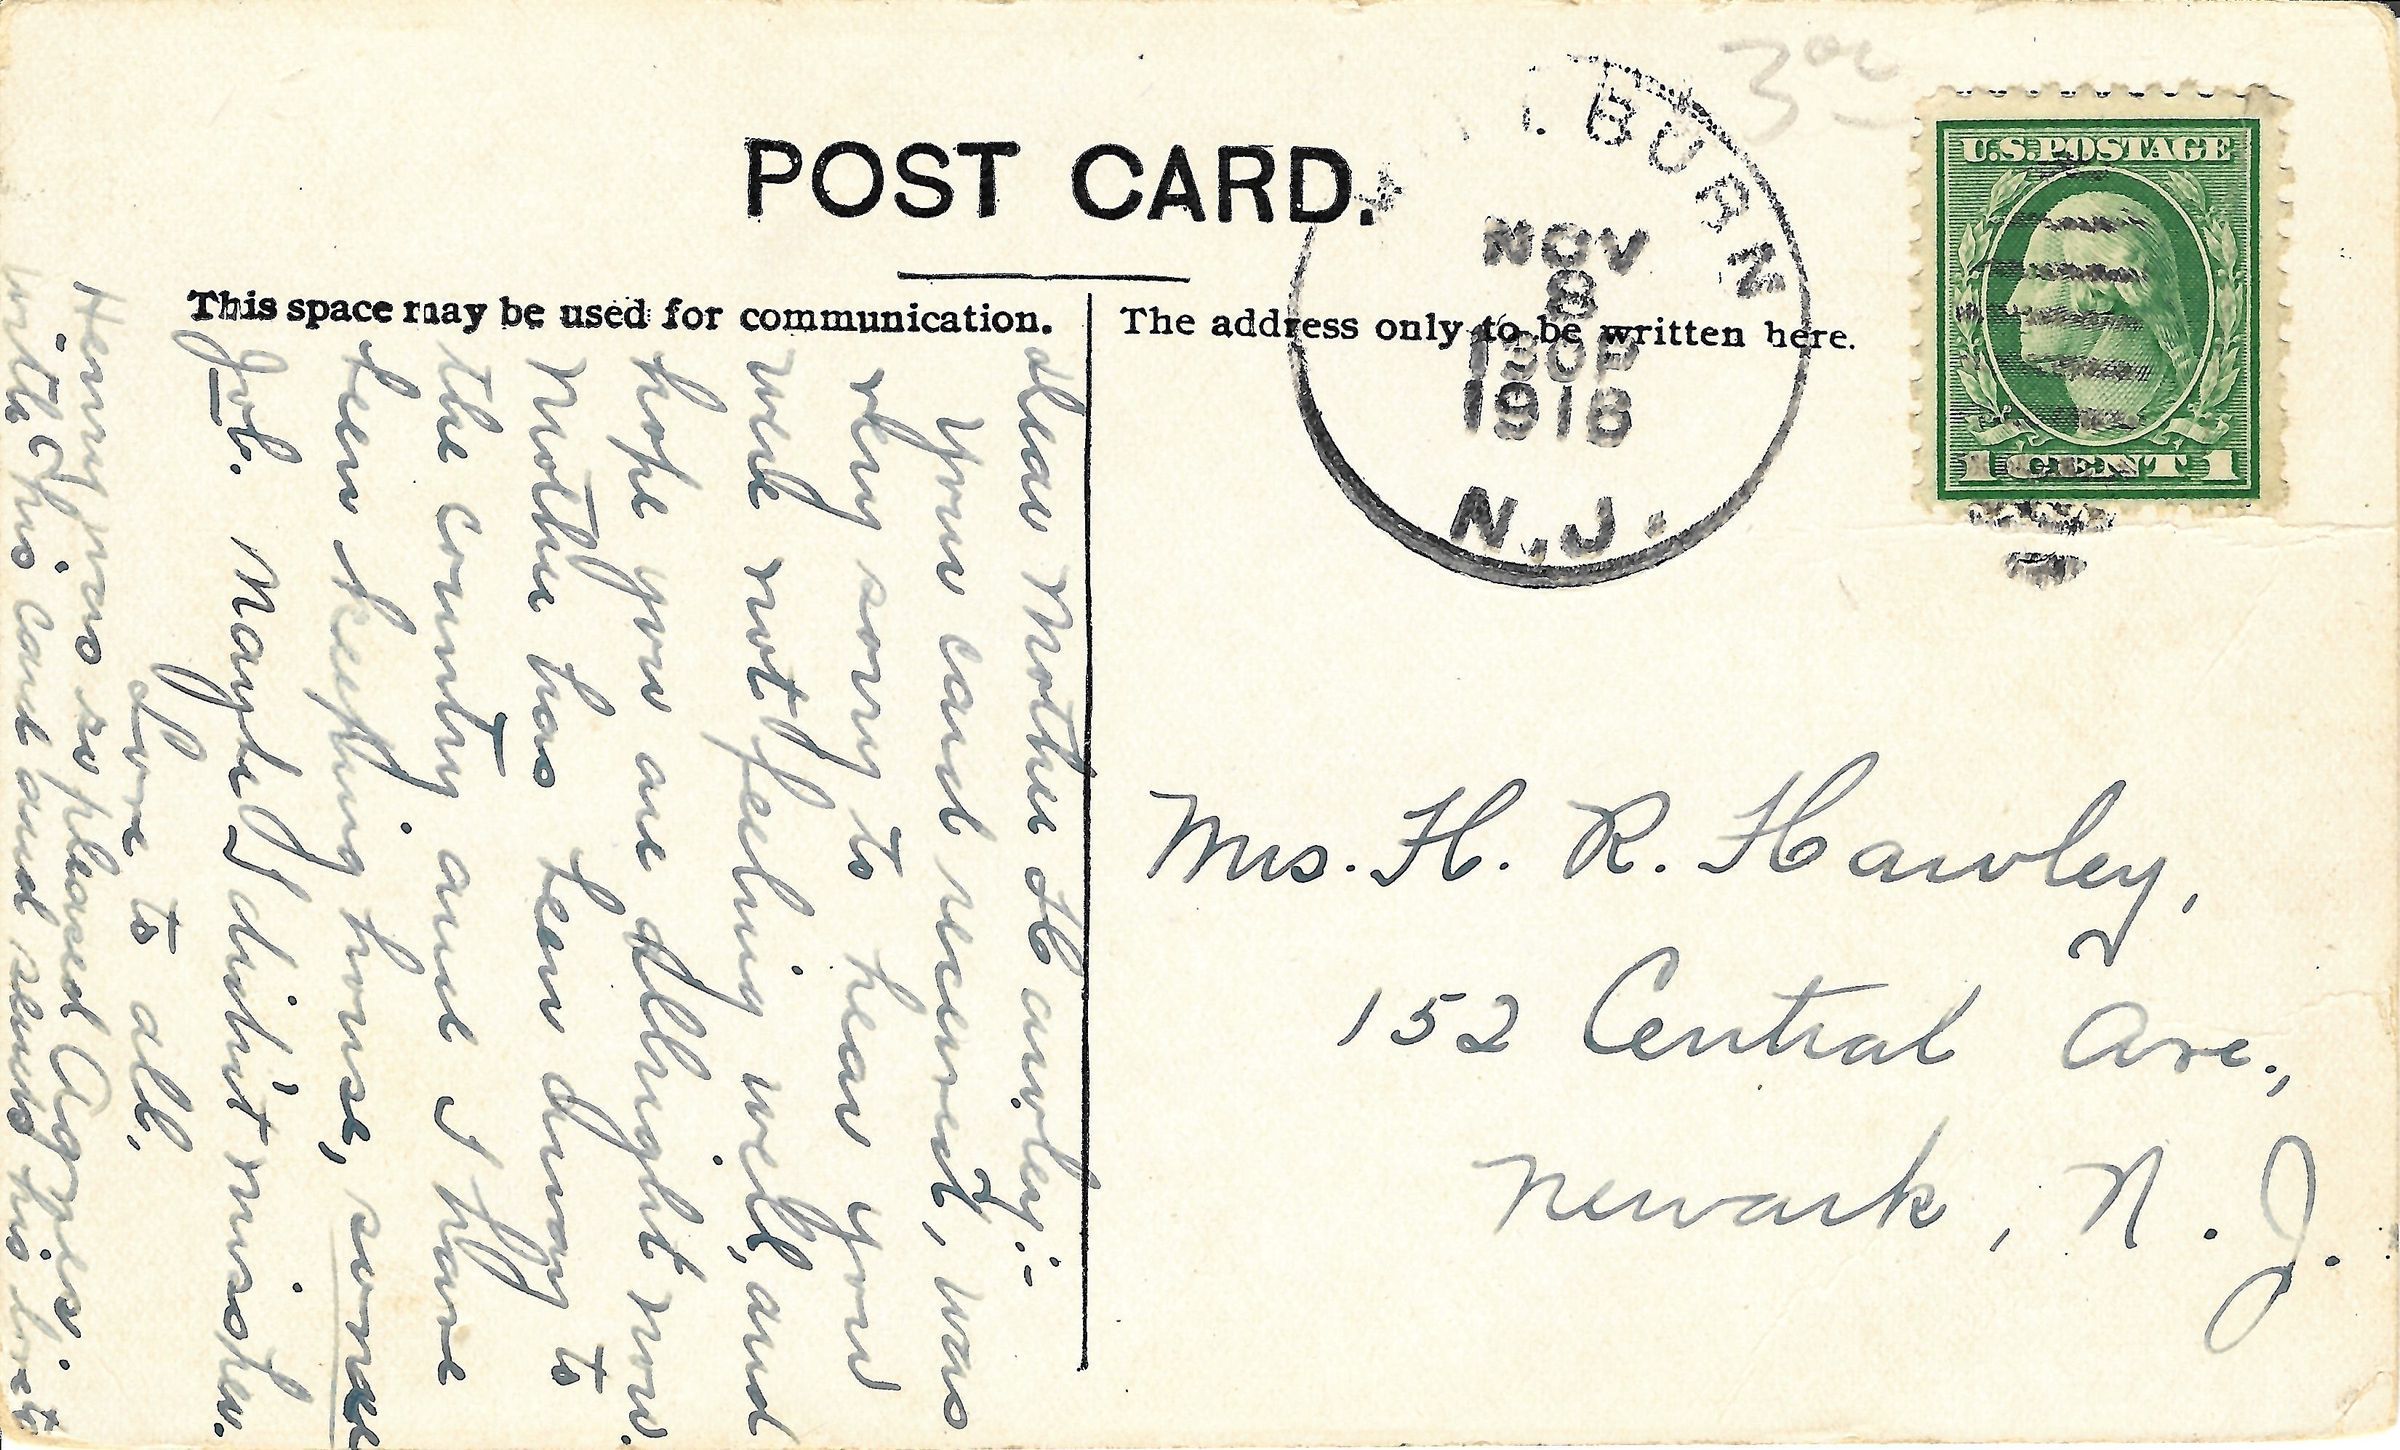 POST CARD.
This space may be used for communication.
The address only to be written here.
BURN
NOV
8
130P
1916
N.J.
3
U.S. POSTAGE
1 CENT 1
Mrs. H. R. Hawley,
152 Central Ave.,
Newark, N. J.
Dear Mother Hawley:-
Your card received, was
very sorry to hear you
were not feeling well, and
hope you are allright now.
Mother has been away to
the country and I have
been keeping house, some
job. Maybe I didn't miss her.
Love to all.
Agnes.
Henry was so pleased
with his card and sends his love